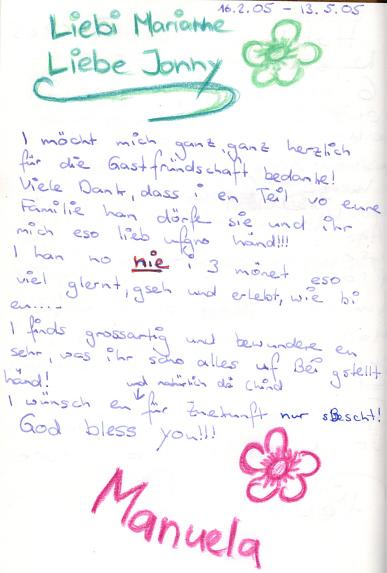 16.2.05 – 13.5.05
Liebi Marianne
Liebe Jonny
I möcht mich ganz, ganz herzlich
für die Gastfründschaft bedanke!
Viele Dank, dass i en Teil vo eure
Familie han dörfe sie und ihr
mich eso lieb ufgno händ!!!
I han no nie i 3 mönet eso
viel glernt, gseh und erlebt, wie bi
en....
I finds grossartig und bewundere en
sehr, was ihr scho alles uf Bei gstellt
händ!
und natürlich dä Chind
I wünsch en für Zuekunft nur sBescht!
God bless you!!!
Manuela